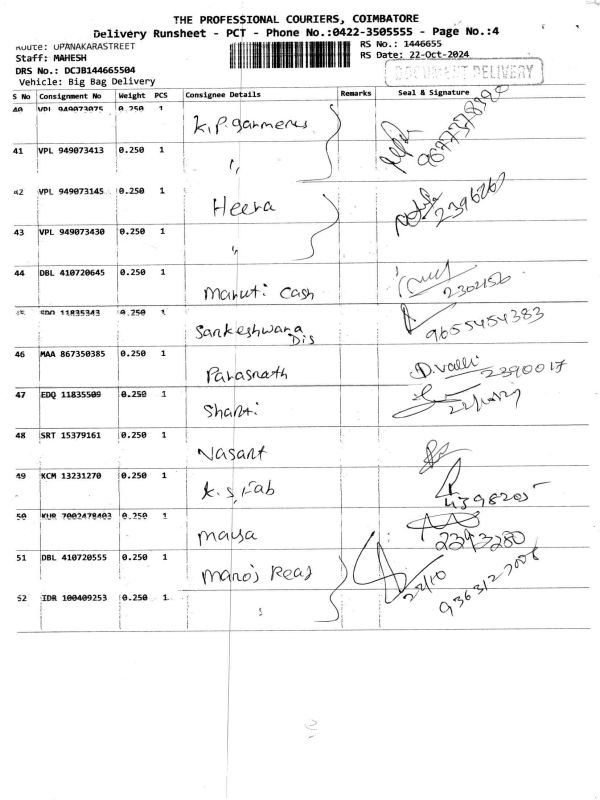 THE PROFESSIONAL COURIERS, COIMBATORE
Delivery Runsheet - PCT - Phone No.:0422-3505555 - Page No.:4
Route: UPANAKARASTREET RS No.: 1446655
Staff: MAHESH RS Date: 22-Oct-2024
DRS No.: DCJB144665504 DOCUMENT DELIVERY
Vehicle: Big Bag Delivery
S No Consignment No Weight PCS Consignee Details Remarks Seal & Signature
40 VPL 949073075 0.250 1 K.P. Garments 9677378390
41 VPL 949073413 0.250 1 "
42 VPL 949073145 0.250 1 Heera
43 VPL 949073430 0.250 1 "
44 DBL 410720645 0.250 1 Maruti Cash 2302156
45 EDQ 11835343 0.250 1 Sankeshwara Dis 9655454383
46 MAA 867350385 0.250 1 Parasnath D.Valli 2390017
47 EDQ 11835509 0.250 1 Shanti
48 SRT 15379161 0.250 1 Vasant
49 KCM 13231270 0.250 1 K.S, Fab 4398205
50 KUR 7002478403 0.250 1 Maya 2393280
51 DBL 410720555 0.250 1 Manoj Read 22/10
52 IDR 100409253 0.250 1 "